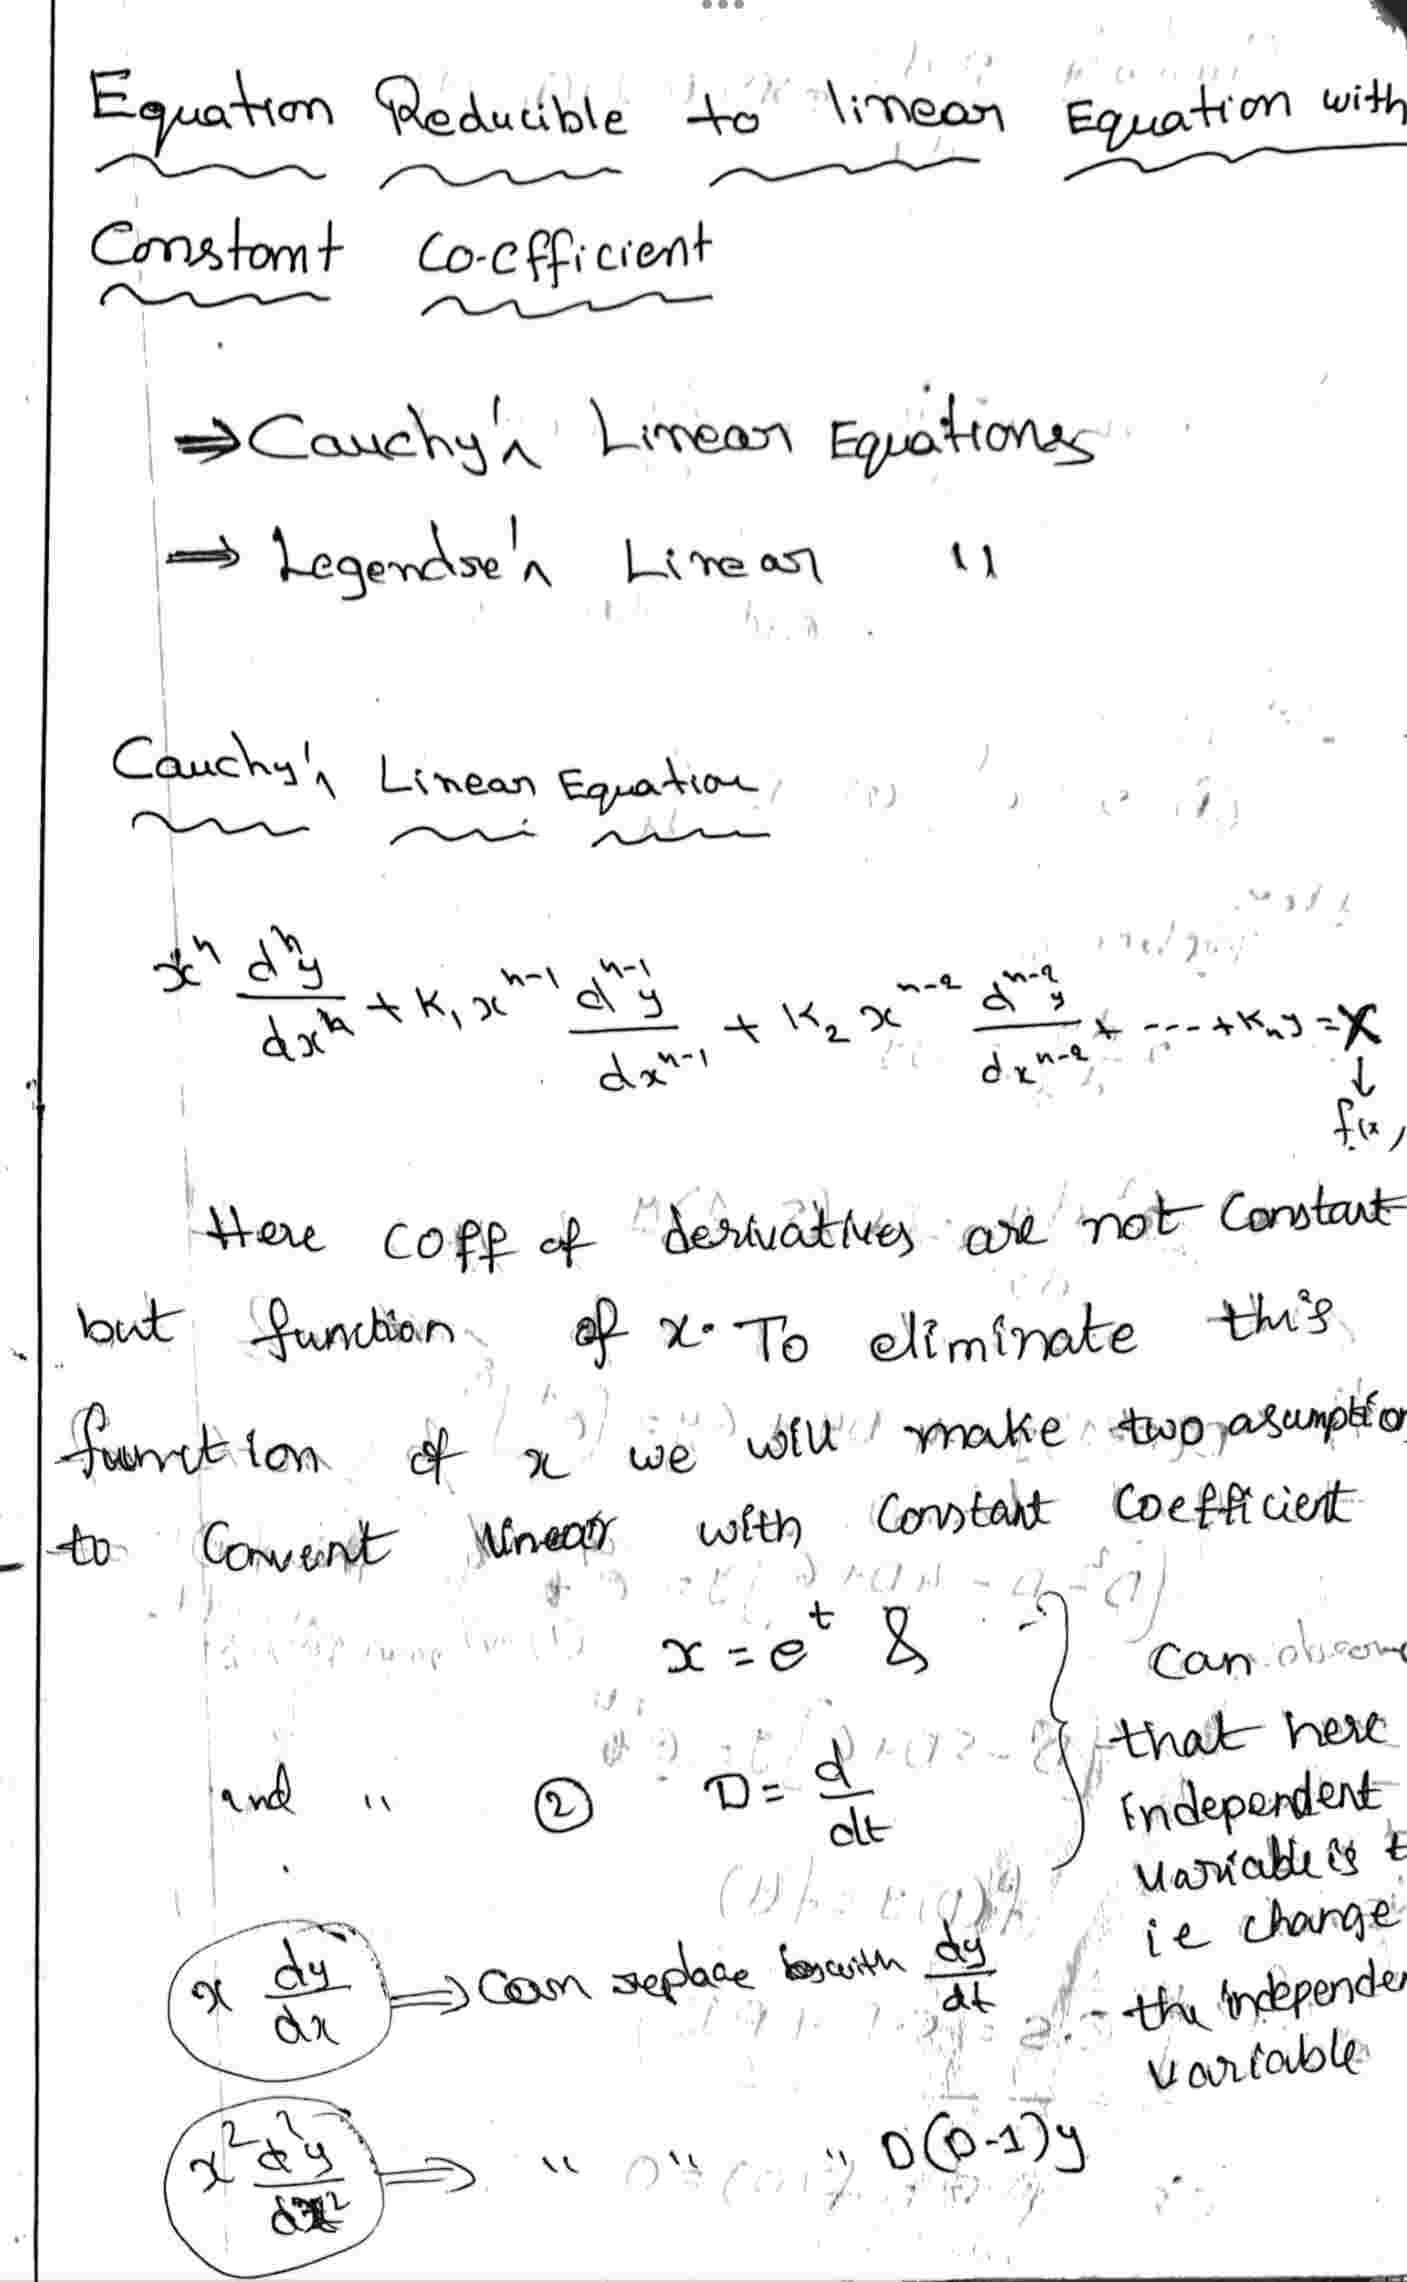 Equation Reducible to linear Equation with
Constant Co-efficient
⇒ Cauchy's Linear Equations
⇒ Legendre's Linear "
Cauchy's Linear Equation
x^n d^n y/dx^n + K₁ x^(n-1) d^(n-1)y/dx^(n-1) + K₂ x^(n-2) d^(n-2)y/dx^(n-2) + ---- + Kₙy = X
↓
f(x)
Here coff of derivatives are not Constant
but function of x. To eliminate this
function of x we will make two asumption
to Convert linear with Constant Coefficient
x = e^t &
and " ② D = d/dt
} Can
that here
independent
variable is t
ie change
the independen
variable
x dy/dx ⇒ Can replace with dy/dt
x² d²y/dx² ⇒ " " " D(D-1)y